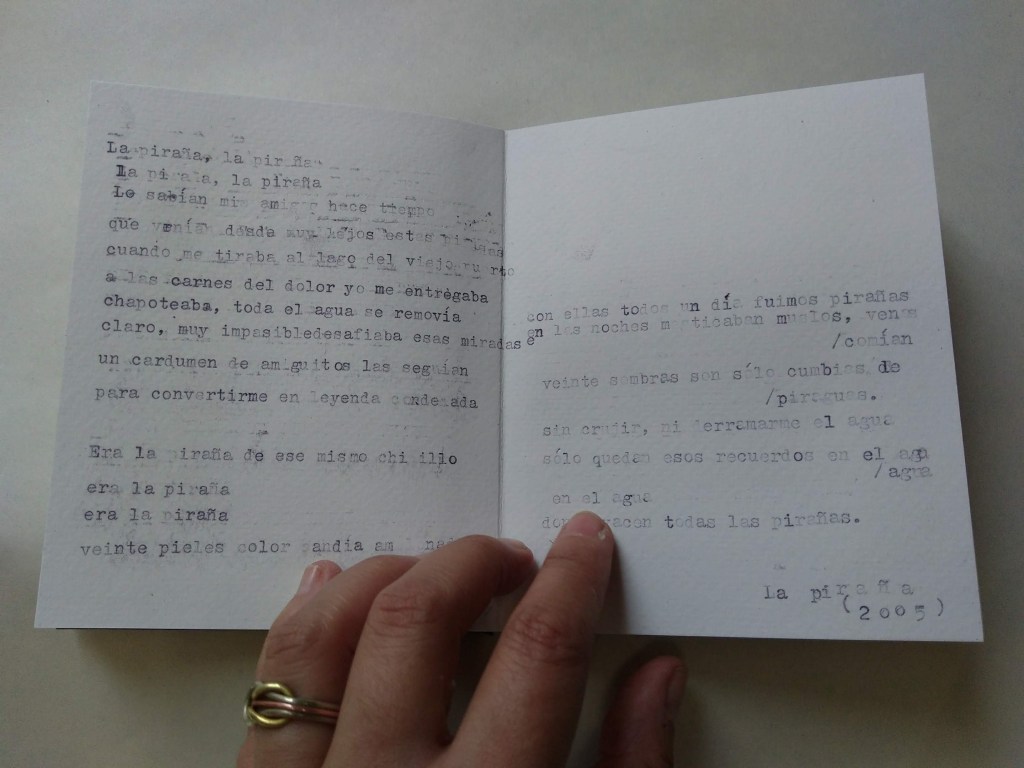 La piraña, la piraña
La piraña, la piraña
Lo sabían mis amigos hace tiempo
que venían desde muy lejos estas pirañas
cuando me tiraba al lago del viejo
a las carnes del dolor yo me entregaba
chapoteaba, toda el agua se removía
claro, muy impasibledesafiaba esas miradas
un cardumen de amiguitos las seguían
para convertirme en leyenda condenada
Era la piraña de ese mismo
era la piraña
era la piraña
veinte pieles color sandia
con ellas todos un día fuimos pirañas
en las noches masticaban muslos, venas
/comían
veinte sombras son sólo cumbias de
/piraguas.
sin crujir, ni derramarme el agua
sólo quedan esos recuerdos en el agu
/agua
en el agua
nacen todas las pirañas.
La piraña
(2005)